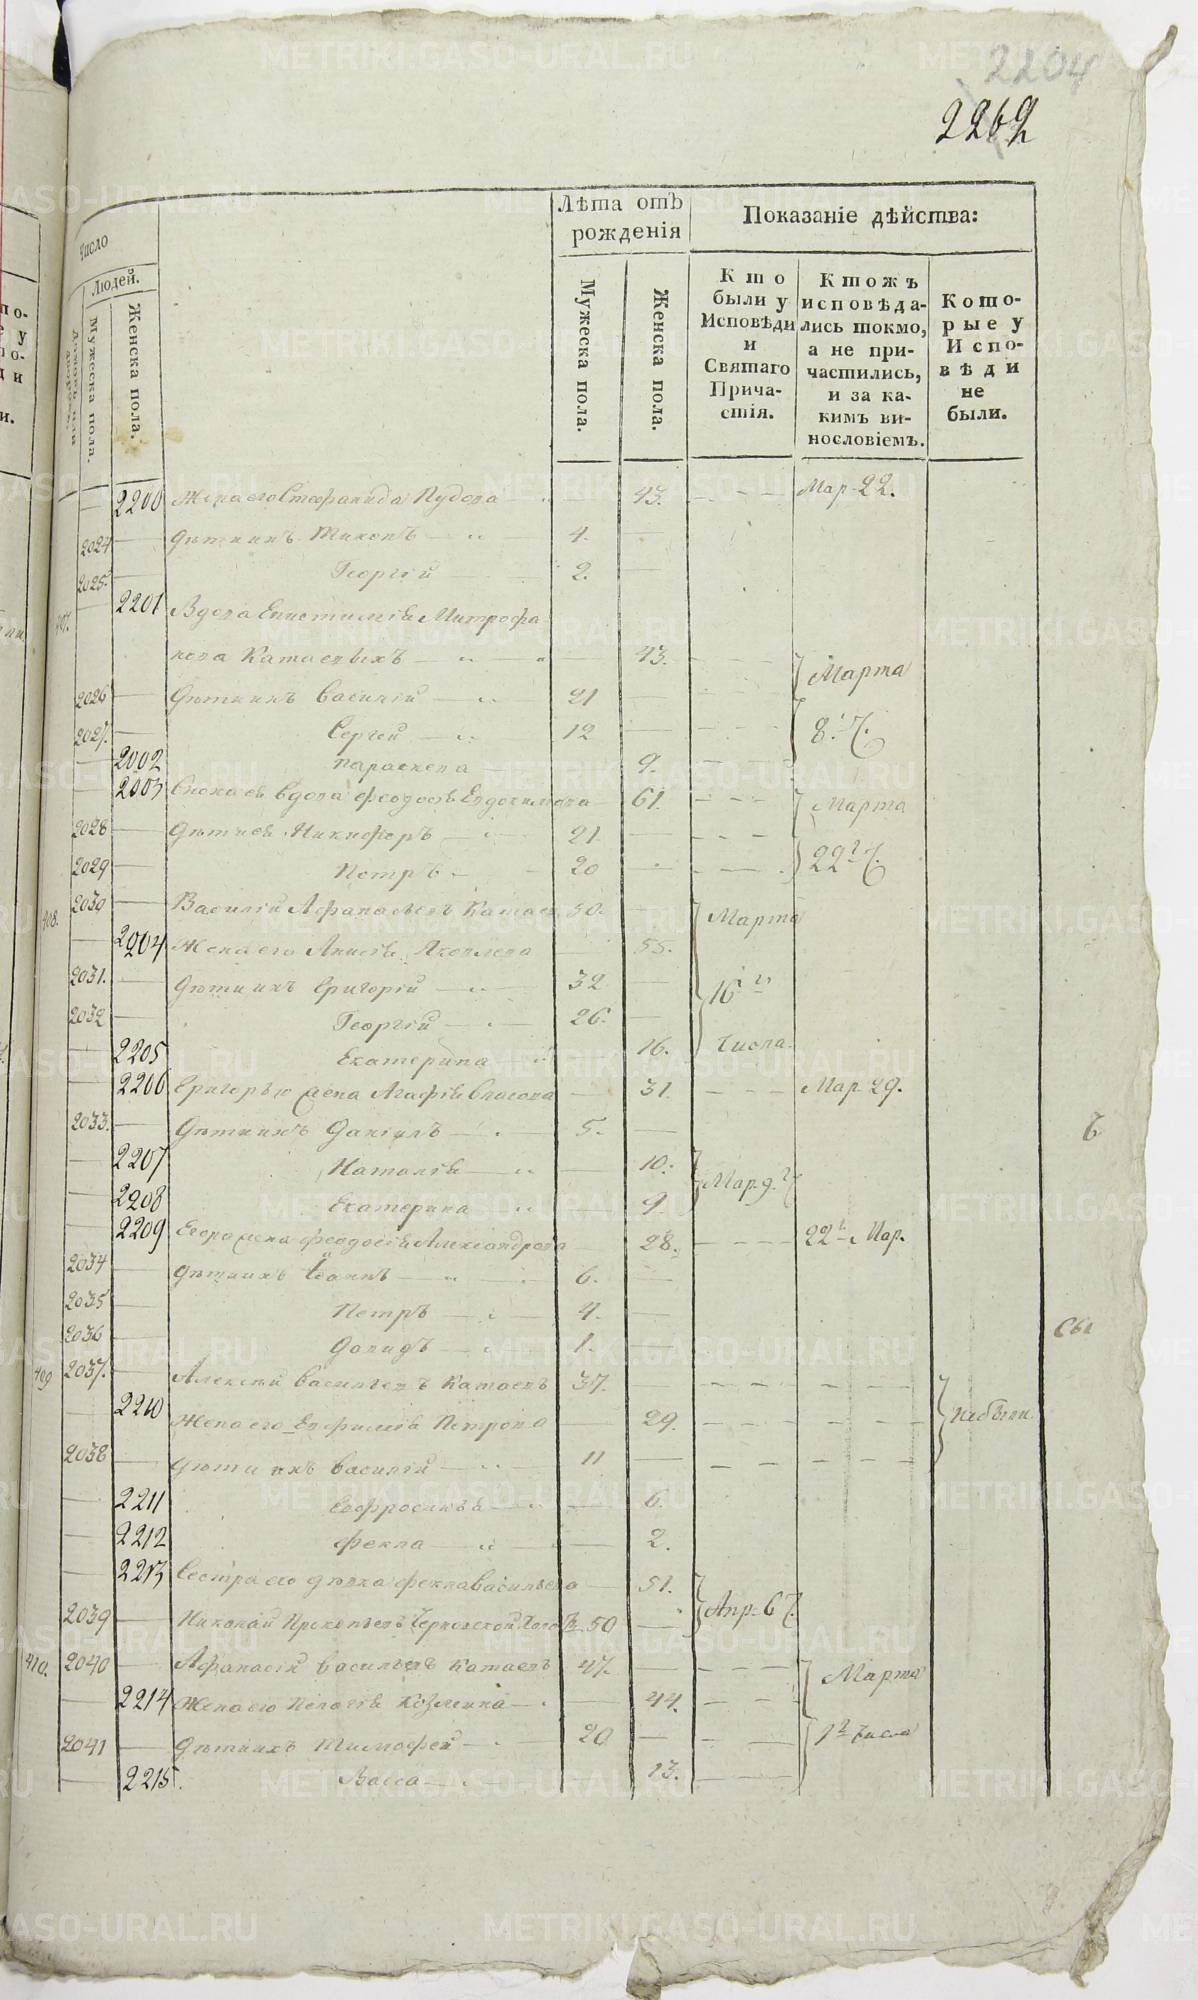 2204
2262
Число
Людей.
Мужеска пола.
Женска пола.
Лѣта отъ рожденія
Мужеска пола.
Женска пола.
Показаніе дѣйства:
Кто были у Исповѣди и Святаго Причастія.
Ктожъ исповѣдались токмо, а не причастились, и за какимъ винословіемъ.
Которые у Исповѣди не были.
2200 Жена его Стефанида 43. Мар. 22.
2024 Дѣти ихъ Тихонъ 4.
2025. Георгій 2.
407. 2201 Вдова Епистимія Митрофа-
нова Катаевыхъ 43. Марта
2026 Дѣти ихъ Василій 21
2027. Сергей 12 8. Ч.
2002 Параскева 9.
2003 вдова Феодосія Евдокимова 61. Марта
2028 Дѣти ея Никифоръ 21.
2029 Петръ 20 22 Ч.
408. 2030 Василій Афанасьевъ Катаевъ 50. Марта
2204 Жена его Анисія Яковлева 55.
2031. Дѣти ихъ Григорій 32 16
2032 Георгій 26.
2205 Екатерина 16. Числа.
2206 Григорью жена Агафія Власова 31. Мар. 29.
2033. Дѣти ихъ Даніилъ 5.
2207 Наталія 10. Мар. 9. Ч.
2208 Екатерина 9.
2209 Егора жена Феодосія Александрова 28. 22 Мар.
2034 Дѣти ихъ Іоаннъ 6.
2035 Петръ 4.
2036 Давидъ 1.
409 2037. Алексѣй Васильевъ Катаевъ 37.
2210 Жена его Евфимія Петрова 29. Небыли
2038 Дѣти ихъ Василій 11
2211 Евфросинія 6.
2212 Фекла 2.
2213 Сестра его дѣвка Фекла Васильева 51. Апр. 6 Ч.
2039 Николай Прокопьевъ 50
410. 2040 Афанасій Васильевъ Катаевъ 47. Марта
2214 Жена его Пелагія Козмина 44.
2041 Дѣти ихъ Тимофей 20 1 Числа
2215. Васса 13.
METRIKI.GASO-URAL.RU